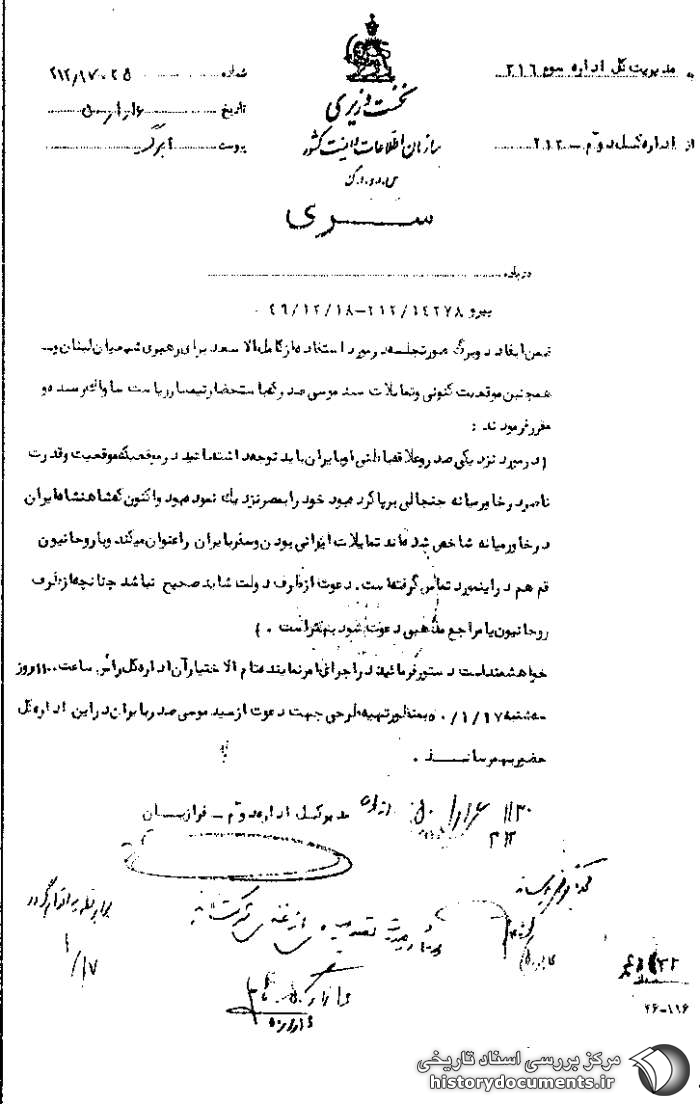 به مدیریت کل اداره سوم ۳۱٦
از اداره کل دوّم - ۲۱۲
نخست وزیری
سازمان اطلاعات و امنیت کشور
س.ا.و.ا.ک
شماره ۲۱۲/۱۷۰۲۵
تاریخ ۵۰/۱/۱۶
پیوست ۲ برگ
سری
درباره
پیرو ۲۱۲/۱٤۲۷۸-٤۹/۱۲/۱۸
ضمن ایفاد دو برگ صورتجلسه در مورد استفاده از کامل الاسعد برای رهبری شیعیان لبنان و
همچنین موقعیت کنونی و تمایلات سید موسی صدر که باستحضار تیمسار ریاست ساواک رسیده و
مقرر فرمودند :
(در مورد نزدیکی صدر و علاقه باطنی او بایران باید توجه داشته باشید در موقعیکه موقعیت و قدرت
ناصر در خاورمیانه جنجالی برپا کرده بود خود را بمصر نزدیک نموده بود و اکنون که شاهنشاه ایران
در خاورمیانه شاخص شده اند تمایلات ایرانی بودن و سفر بایران را عنوان میکند و با روحانیون
قم هم در اینمورد تماس گرفته است. دعوت از طرف دولت شاید صحیح نباشد چنانچه از طرف
روحانیون یا مراجع مذهبی دعوت شود بهتر است . )
خواهشمند است دستور فرمائید در اجرای امر نماینده تام الاختیار آن اداره کل رأس ساعت ۱۱۰۰ روز
سه شنبه ۵۰/۱/۱۷ بمنظور تهیه طرحی جهت دعوت از سید موسی صدر بایران در این اداره کل
حضور بهم رسانند .
مدیر کل اداره دوّم - فرازیان
۱۱۳۰
۵۰/۱/۱۶
۱/۱۷
۲۶-۱۱۶
مرکز بررسی اسناد تاریخی
historydocuments.ir